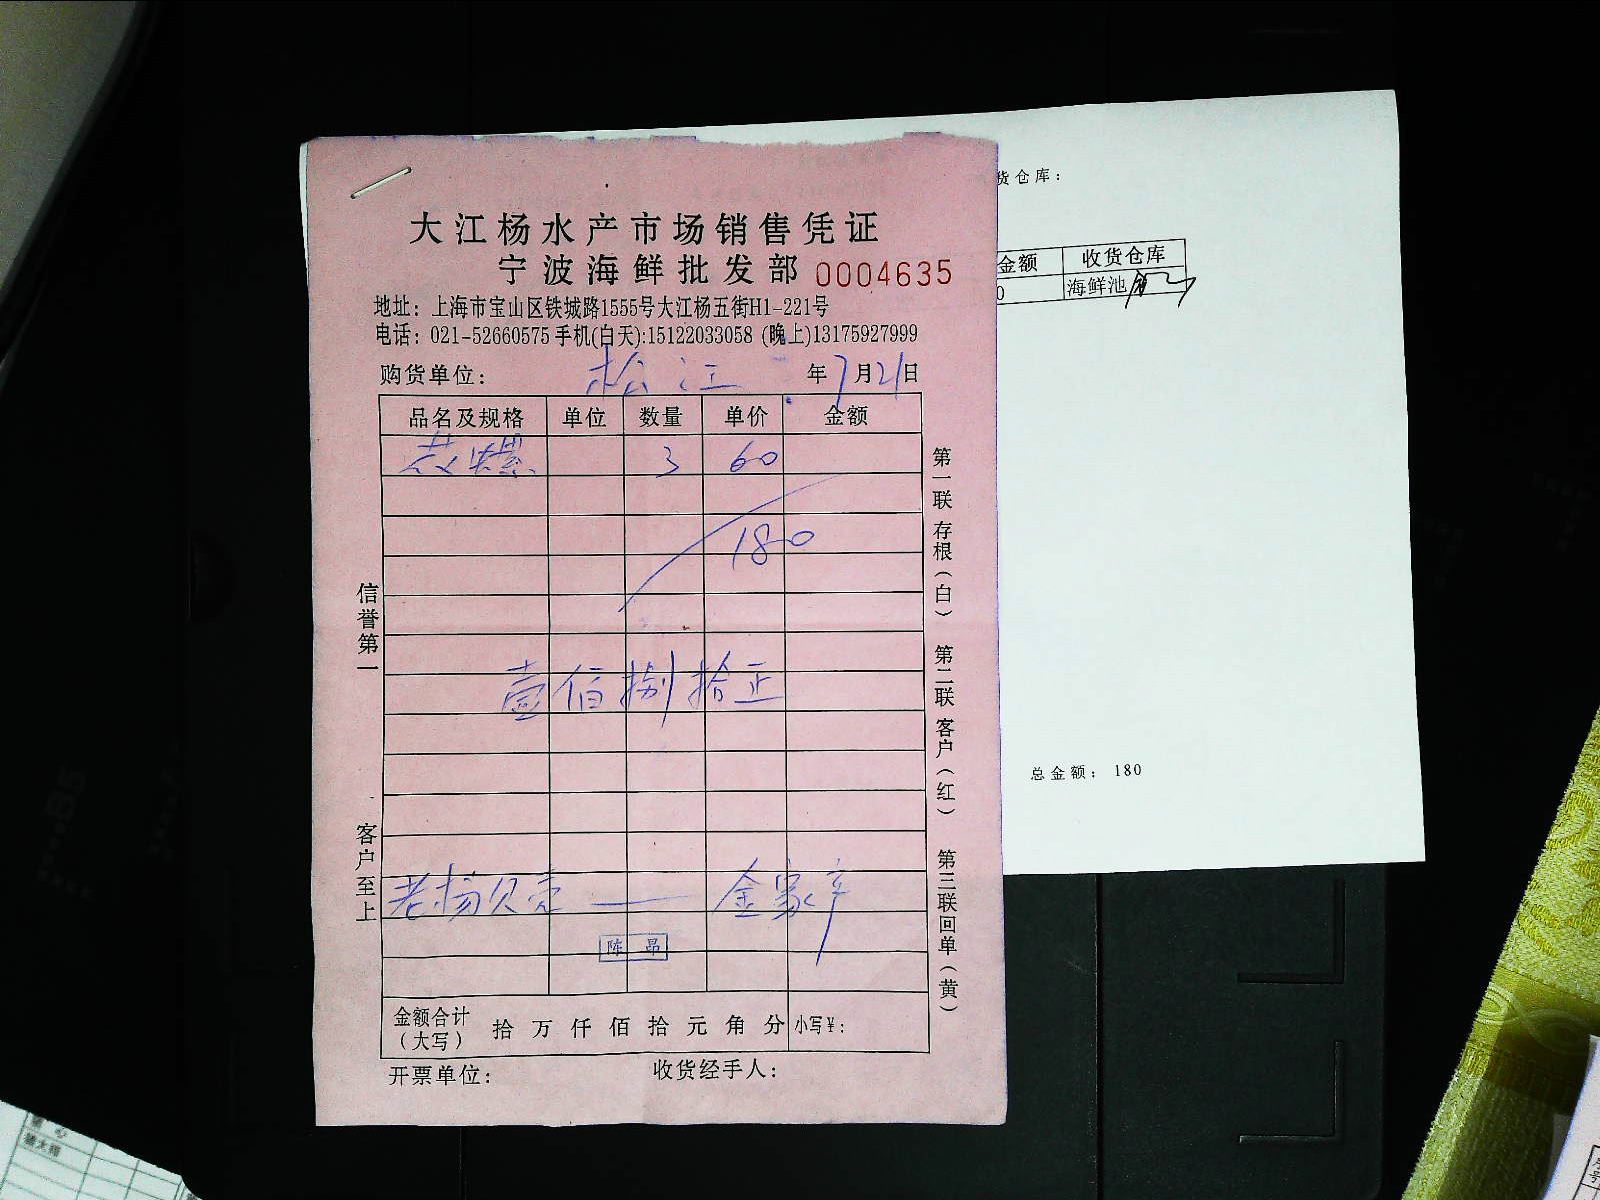 大江杨水产市场销售凭证
宁波海鲜批发部 0004635
地址：上海市宝山区铁城路1555号大江杨五街H1-221号
电话：021-52660575 手机(白天):15122033058 (晚上)13175927999
购货单位： 松江 年7月21日
品名及规格 单位 数量 单价 金额
螺 3 60
180
壹佰捌拾正
老杨贝壳 — 金家
陈昂
金额合计（大写） 拾 万 仟 佰 拾 元 角 分 小写¥：
开票单位： 收货经手人：
信誉第一
客户至上
第一联 存根（白） 第二联 客户（红） 第三联 回单（黄）
货仓库：
金额 收货仓库
0 海鲜池
总金额： 180